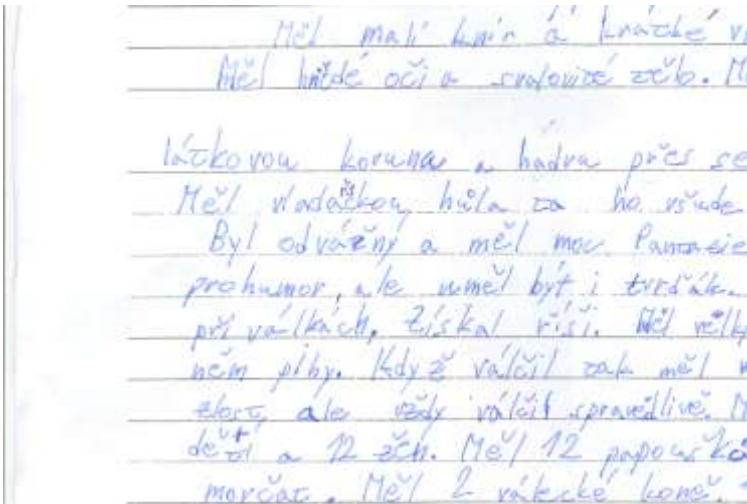 Měl malí knír a krátké v
Měl hnědé oči a svalovité tělo. M
látkovou korunu a hadru přes se
Měl vladařskou hůla ho všude
Byl odvážný a měl moc Pantazie
prohumor, ale uměl být i tvrďák.
při válkách, získal říší. Měl velk
něm pihy. Když válčil tak měl
zlost, ale vždy válčil spravedlivě. M
dětí a 12 žen. Měl 12 papoušků
morčat. Měl 2 válecké koně.